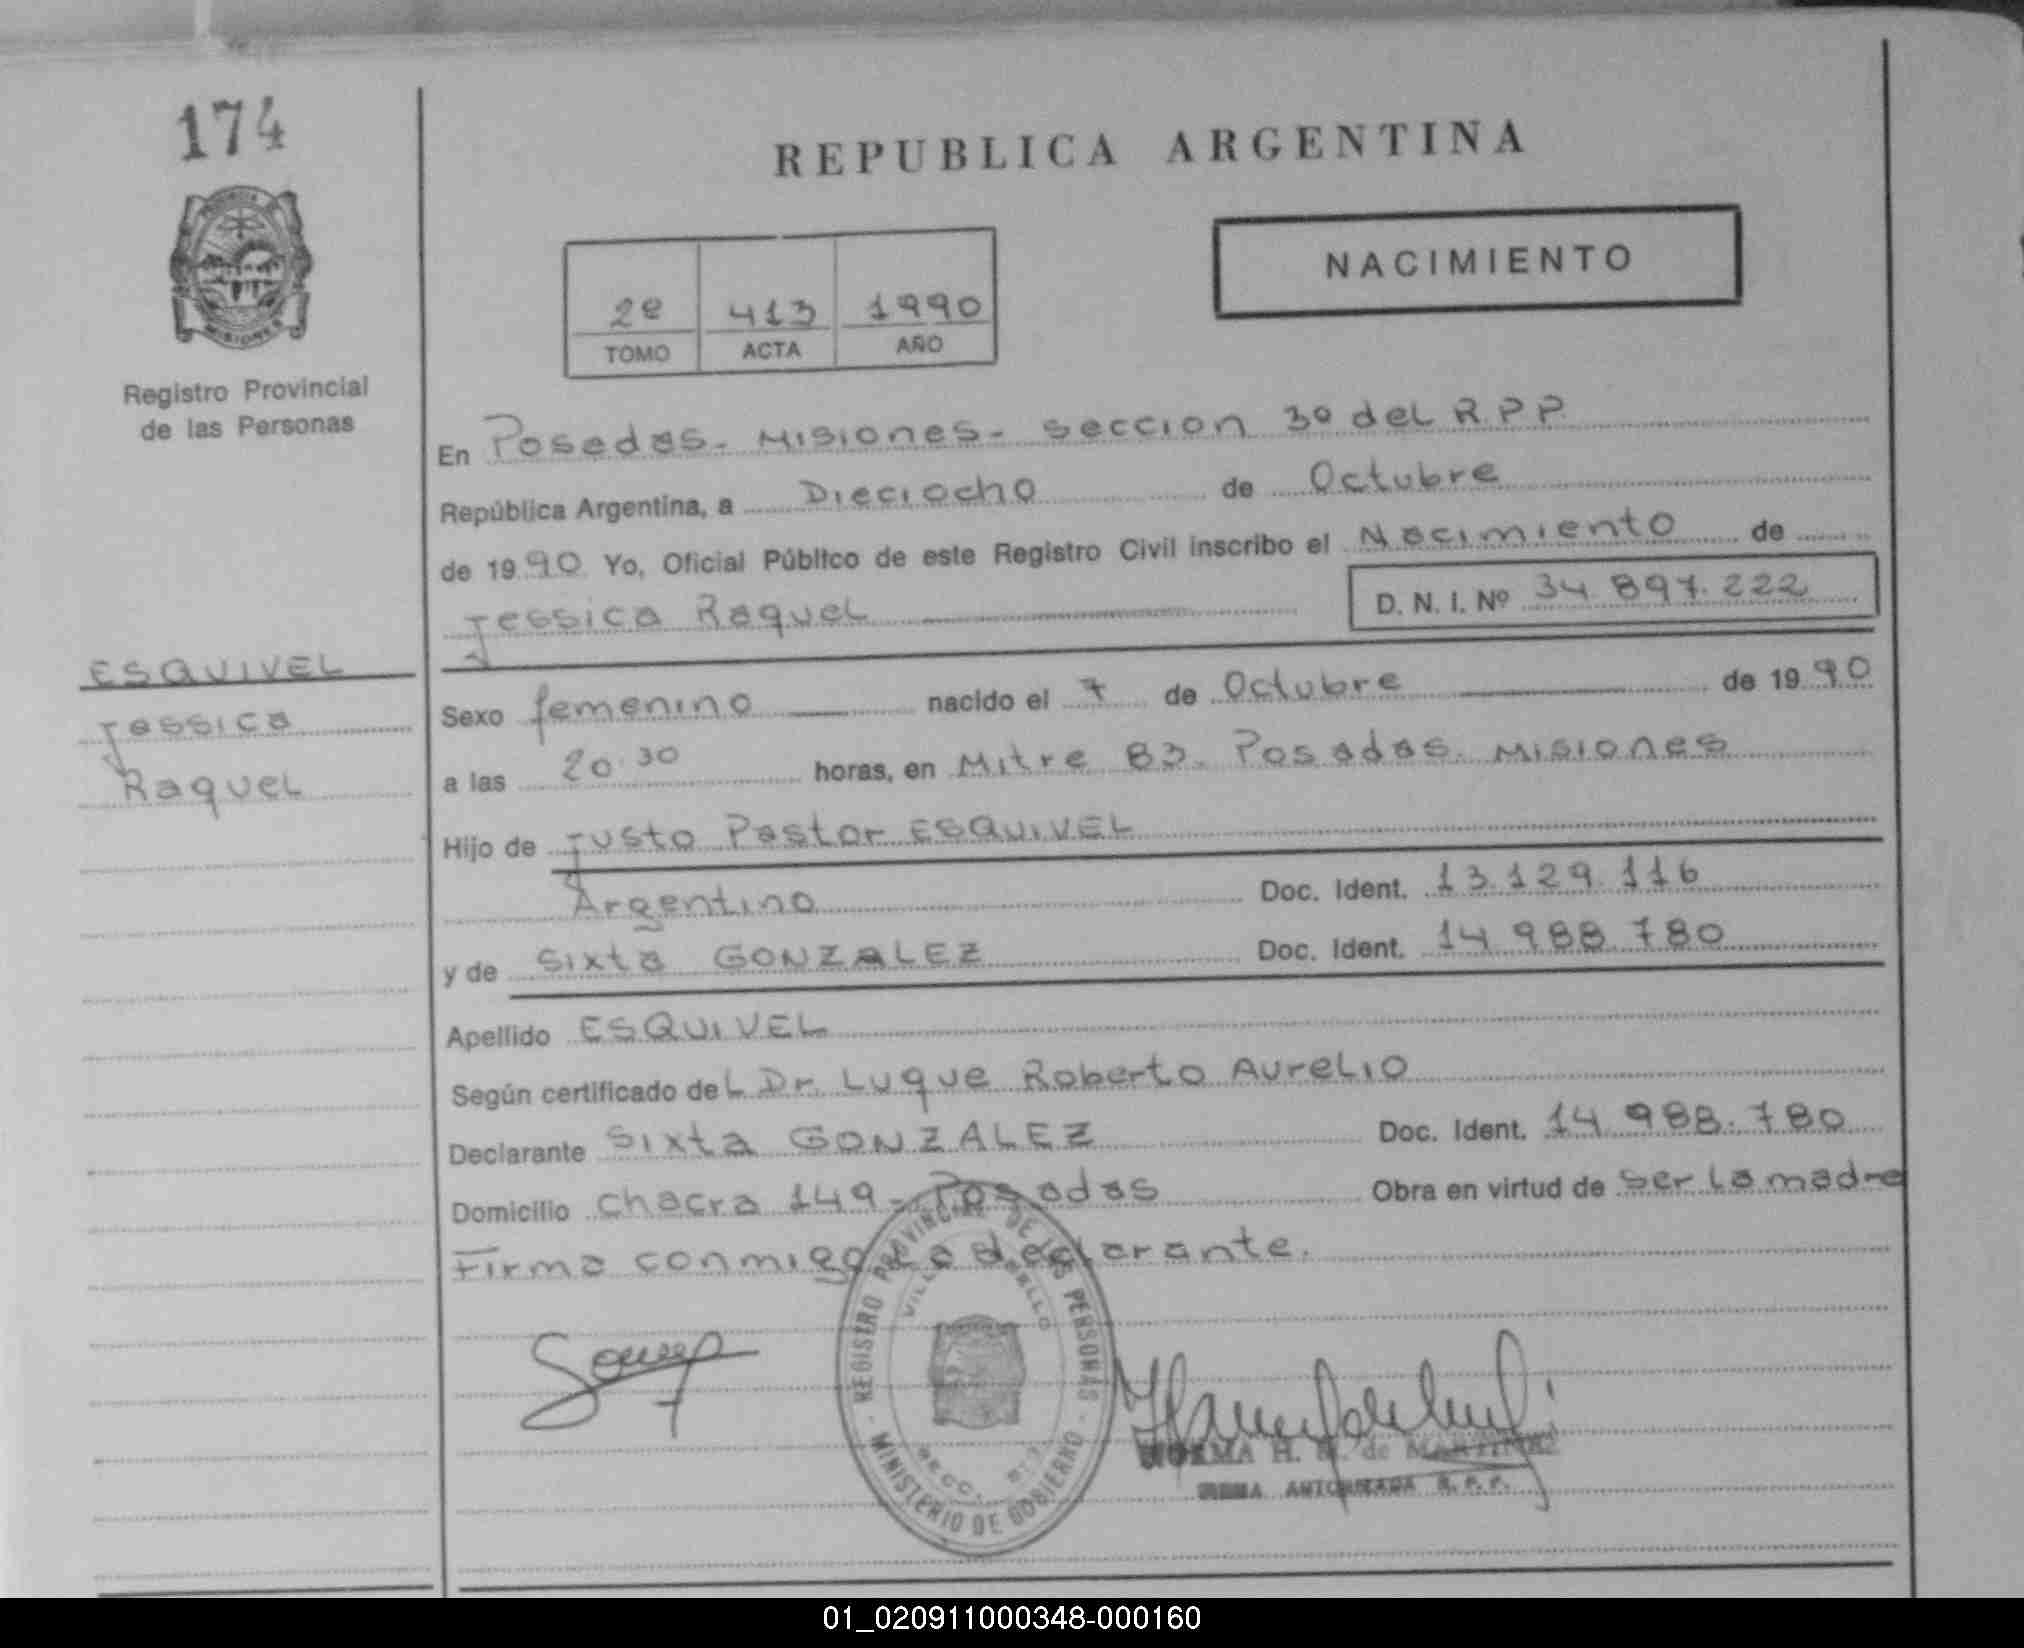 174
REPUBLICA ARGENTINA
NACIMIENTO
2º 413 1990
TOMO ACTA AÑO
Registro Provincial
de las Personas
En Posadas - Misiones - seccion 3º del R.P.P.
República Argentina, a Dieciocho de Octubre
de 1990 Yo, Oficial Público de este Registro Civil inscribo el Nacimiento de
Jessica Raquel D. N. I. Nº 34.897.222
ESQUIVEL
Jessica
Raquel
Sexo femenino nacido el 7 de Octubre de 1990
a las 20.30 horas, en Mitre 83. Posadas. Misiones
Hijo de Justo Pastor ESQUIVEL
Argentino Doc. Ident. 13.129.116
y de Sixta GONZALEZ Doc. Ident. 14.988.780
Apellido ESQUIVEL
Según certificado del Dr. Luque Roberto Aurelio
Declarante Sixta GONZALEZ Doc. Ident. 14.988.780
Domicilio Chacra 149 - Posadas Obra en virtud de ser la madre
Firma conmigo la declarante.
REGISTRO PROVINCIAL DE LAS PERSONAS
MINISTERIO DE GOBIERNO
VILLA
SECC.
NORMA H. de
FIRMA AUTORIZADA R. P. P.
MISIONES
01_020911000348-000160